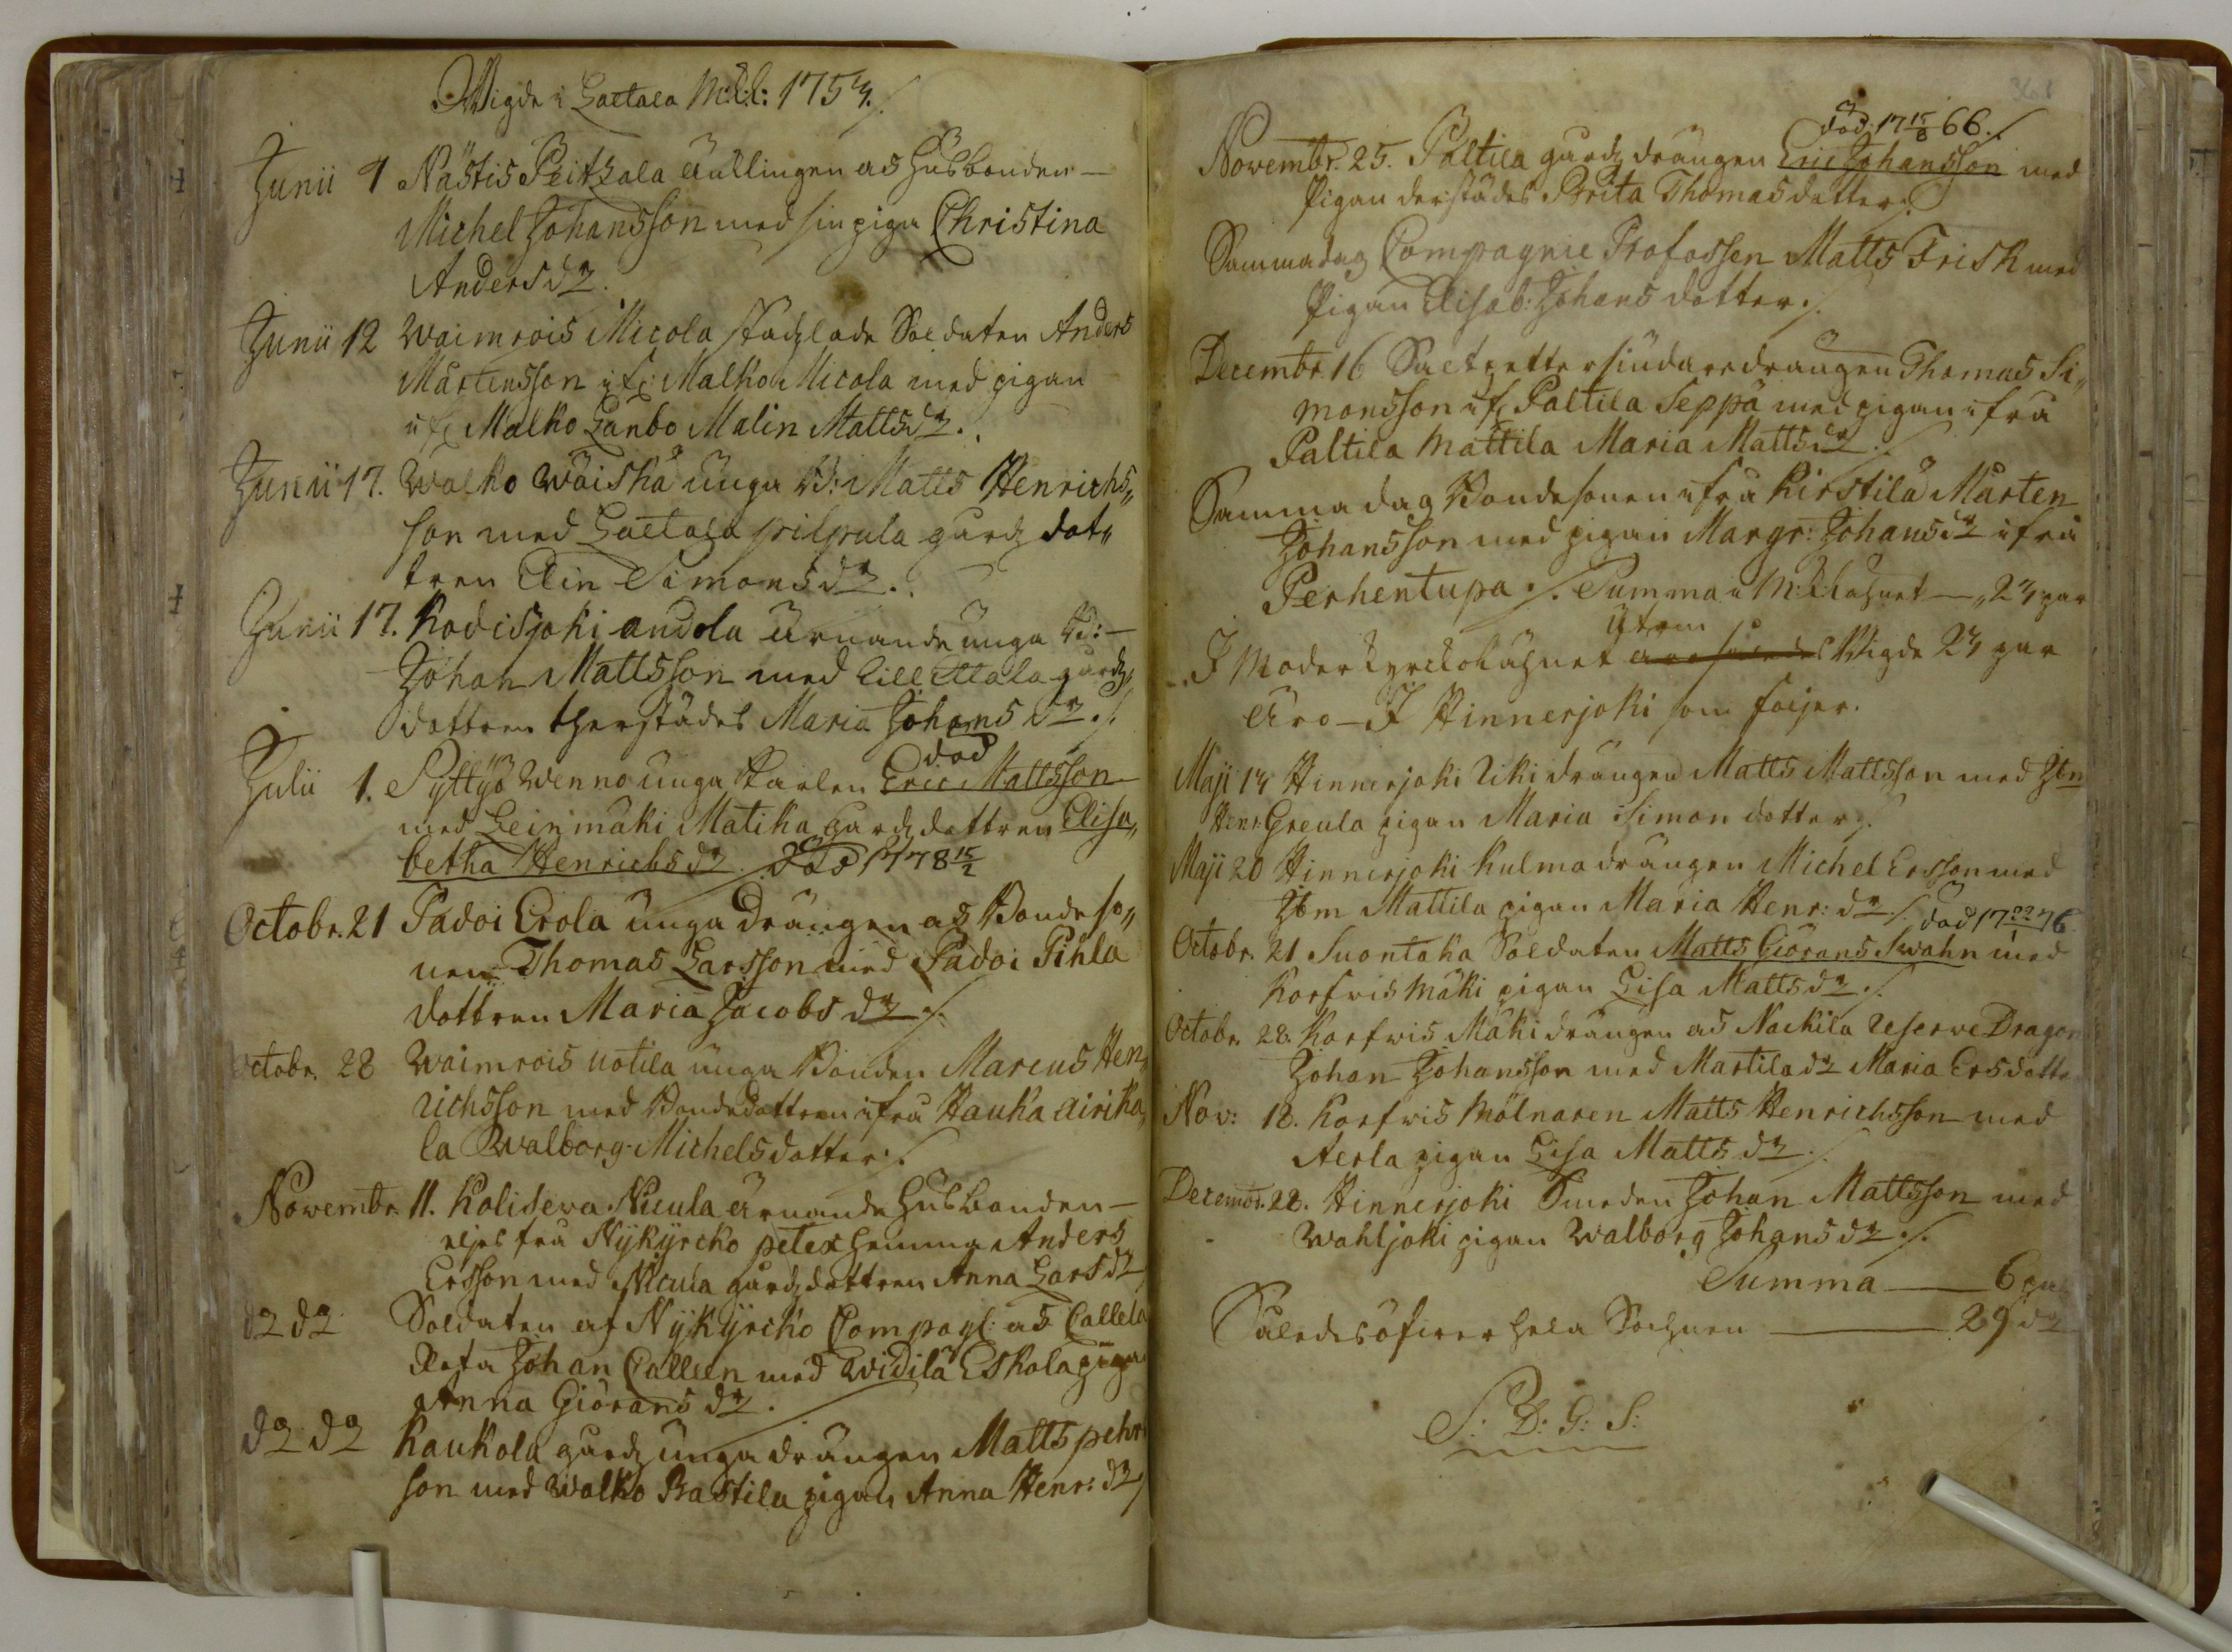 Wigde i Laetala M:k: 1754./.
Junii 9 Nästis Peitzala änklingen as Husbonden —
Michel Johansson med sin piga Christina
Anders dr.
Junii 12 Waimrois Micola Soldaten Anders
Mårtensson ifr: Malko Micola med pigan
ifr: Malko Lanbo Malin Matts dr.
Junii 17. Walko Wäiskä unga B: Matts Henrichs„
son med Laetala pilpula gårdz dot„
tren Elin Simons dr.
Junii 17. Kodisjoki andola unga B: —
Johan Mattsson med lill Ittala gårdz
dottren therstädes Maria Johans dr ./.
död
Julii 1. Pyttyö Wenno unga Karlen Eric Mattsson
med Leinmäki Matika gårdz dottren Elisa„
betha Henrichs dr. död 1778 15/2
Octobr. 21 Padoi Erola unga drängen as Bondeso„
nen Thomas Larsson med Padoi Pihla
dottren Maria Jacobs dr ./.
Octobr. 28 Waimrois uotila unga Bonden Marcus Hen„
richsson med Bondedottren ifrå Hauka airika„
la Walborg Michelsdotter ./.
Novembr. 11. Kolisewa Nicula Husbonden —
frå Nykyrcko petex hemma Anders
Ersson med Nicula gårdzdottren Anna Lars dr
do do Soldaten af Nykyrcko Compagl: as Callela
Rota Johan Calleen med Widilä Eskola piga
Anna Giörans dr.
do do Kaukola gårdz unga drängen Matts pehr
son med Walko Rastila pigan Anna Henr: dr
död: 17 15/8 66./.
Novembr. 25. Paltila gårdz drängen Eric Johansson med
Pigan derstädes Brita Thomasdotter ./.
Samma dag Compagnie Profossen Matts Frisk med
Pigan Elisab: Johans dotter ./.
Decembr. 16 drängen Thomas Si„
monsson ifr: Paltila Seppä med pigan ifrå
Paltila Mattila Maria Matts dr ./.
Samma dag Bondesonen ifrå Kirstilä Mårten
Johansson med pigan Margr: Johans dr ifrå
Perhentupa ./. Summa i M:k — „ 23 par
utom
I Moderkyrcko Wigde 23 par
äro — I Hinnerjoki som följer.
Maji 13 Hinnerjoki Uki drängen Matts Mattsson med Jbm
Henr: Greula pigan Maria Simon dotter ./.
Maji 20 Hinnerjoki Kulma drängen Michel Ersson med
Jbm Mattila pigan Maria Henr: dr ./. död 17 22/1 76
Octobr. 21 Suontaka Soldaten Matts Giörans Swahn med
Korfwis Mäki pigan Lisa Matts dr ./.
Octobr. 28. Korfwis Mäki drängen as Nackila reserve Dragon
Johan Johansson med Martila dr Maria Ersdotte
Nov: 18. Korfwis Mölnaren Matts Henrichsson med
Aerla pigan Lisa Matts dr ./.
Decembr. 28. Hinnerjoki Smeden Johan Mattsson med
Wahljoki pigan Walborg Johans dr ./.
Summa — 6 par
Således öfwer hela Sochnen — 29 do
S: D: G: S: